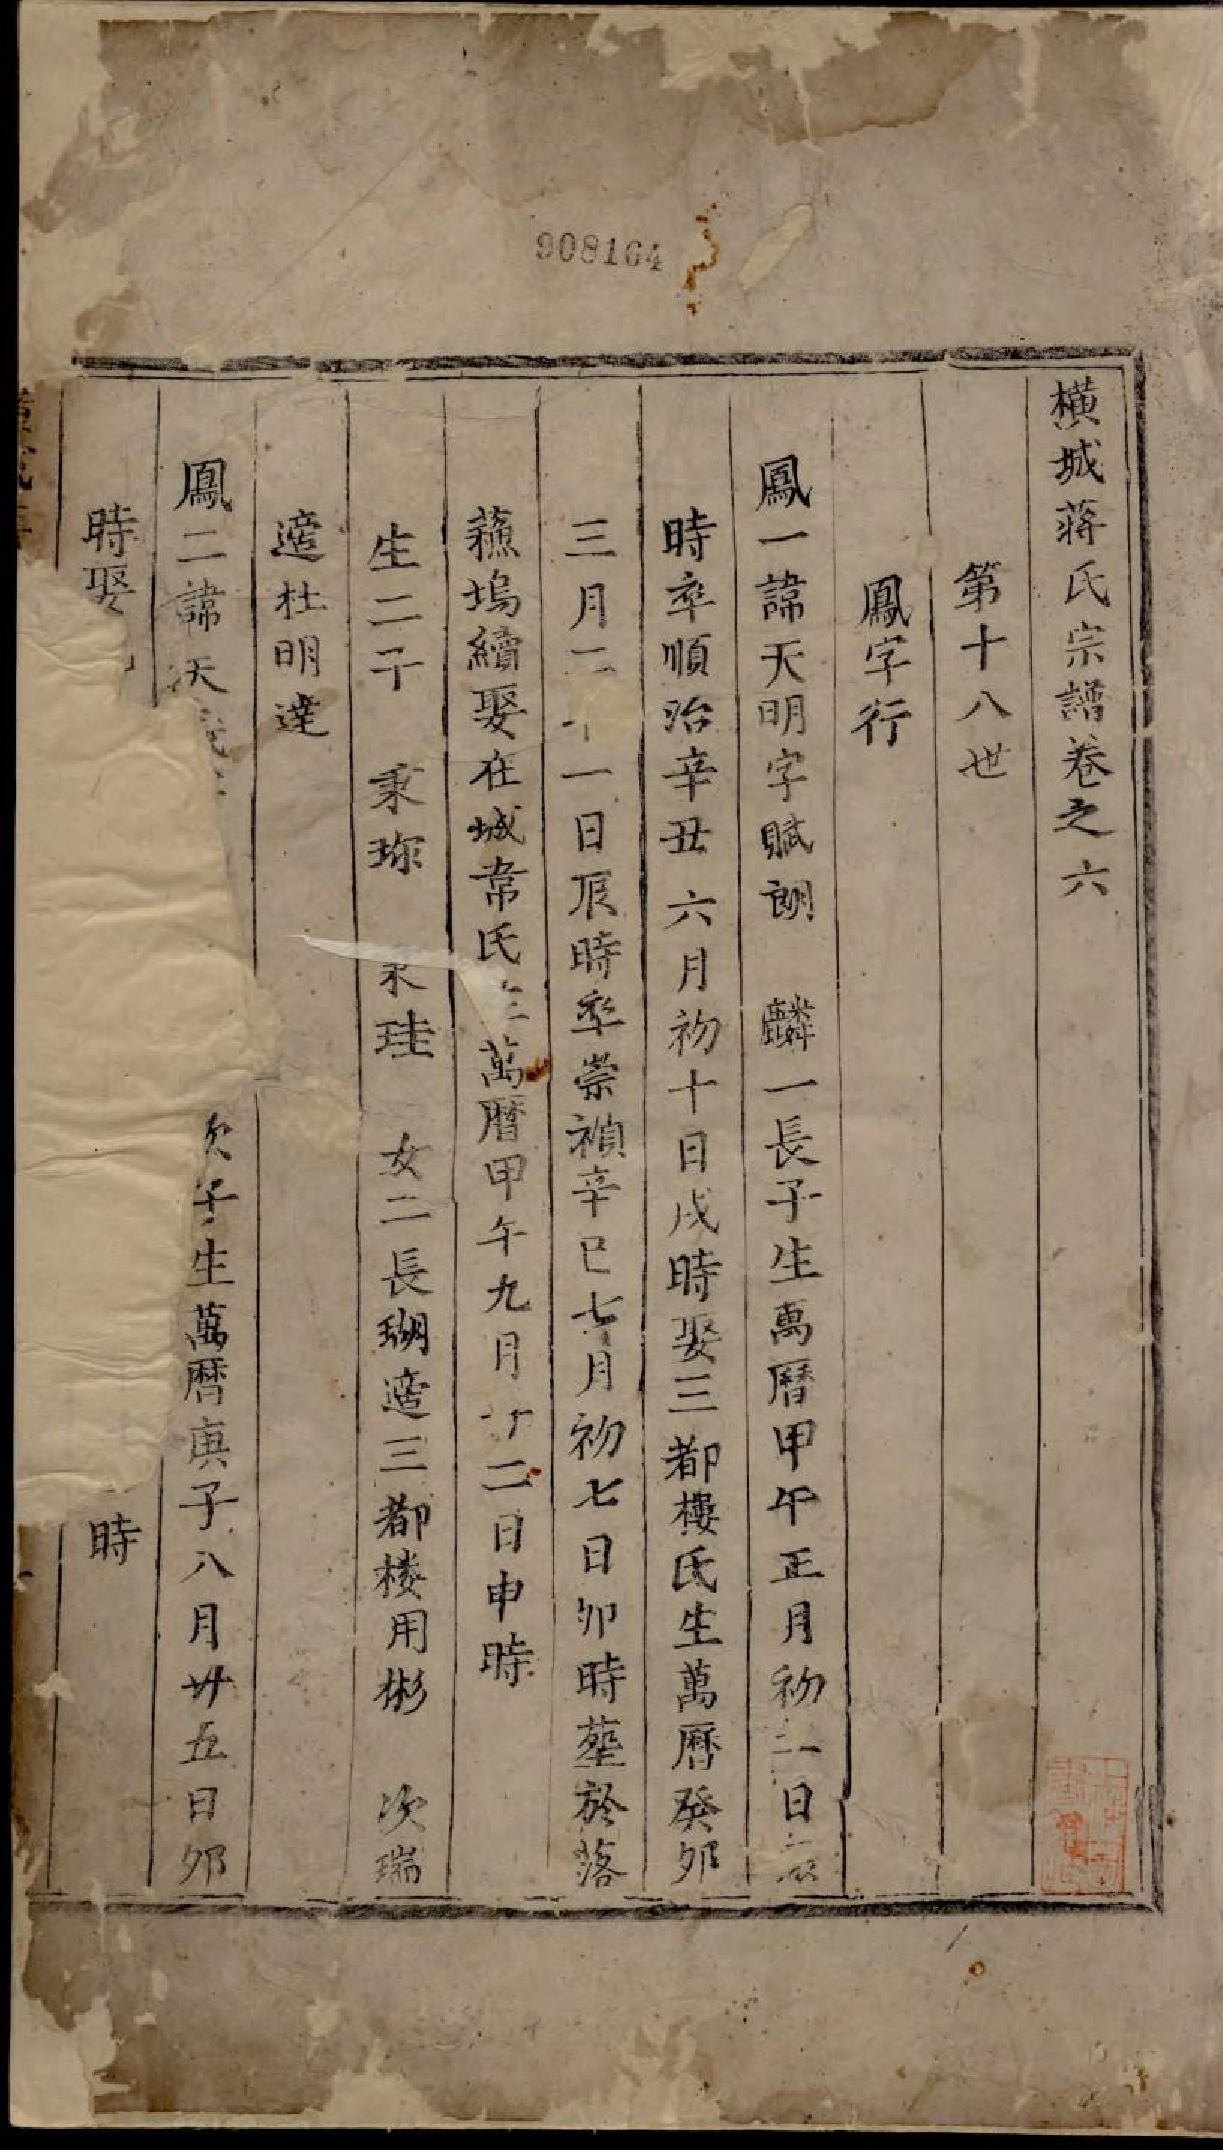 908164
橫城蔣氏宗譜卷之六
第十八世
鳳字行
鳳一諱天明字賦朗 麟一長子生萬曆甲午正月初二日
時卒順治辛丑六月初十日戌時娶三都樓氏生萬曆癸卯
三月二十一日辰時卒崇禎辛巳七月初七日卯時塟於落
蘓塢續娶在城韋氏生萬曆甲午九月廿二日申時
生二子 秉珎 秉珪 女二長瑚適三都楼用彬 次瑞
適杜明達
鳳二諱天 次子生萬曆庚子八月廿五日卯
時娶 時